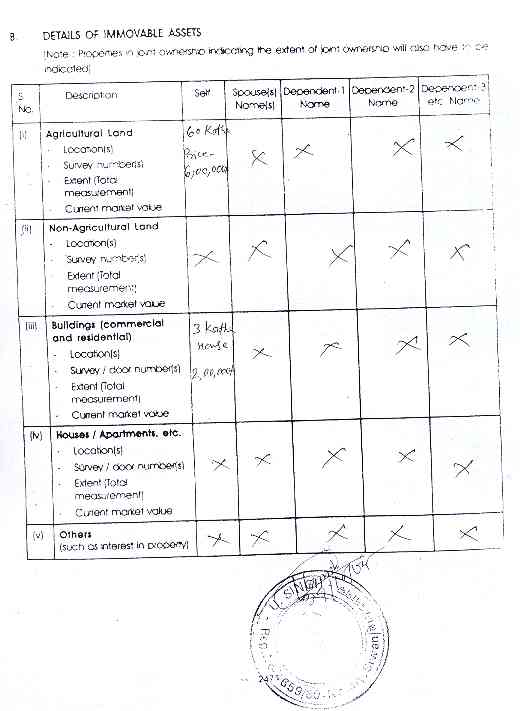 B. DETAILS OF IMMOVABLE ASSETS
(Note : Properties in joint ownership indicating the extent of joint ownership will also have to be
indicated)
S. No. Description Self Spouse(s) Name(s) Dependent-1 Name Dependent-2 Name Dependent-3 etc. Name
(i) Agricultural Land 60 Katha
- Location(s) Price - X X X X
- Survey number(s) 6,00,000
- Extent (Total
measurement)
- Current market value
(ii) Non-Agricultural Land
- Location(s)
- Survey number(s) X X X X X
- Extent (Total
measurement)
- Current market value
(iii) Buildings (commercial 3 Katha
and residential) House
- Location(s) X X X X
- Survey / door number(s) 2,00,000
- Extent (Total
measurement)
- Current market value
(iv) Houses / Apartments, etc.
- Location(s)
- Survey / door number(s) X X X X X
- Extent (Total
measurement)
- Current market value
(v) Others X X X X X
(such as interest in property)
SINGH